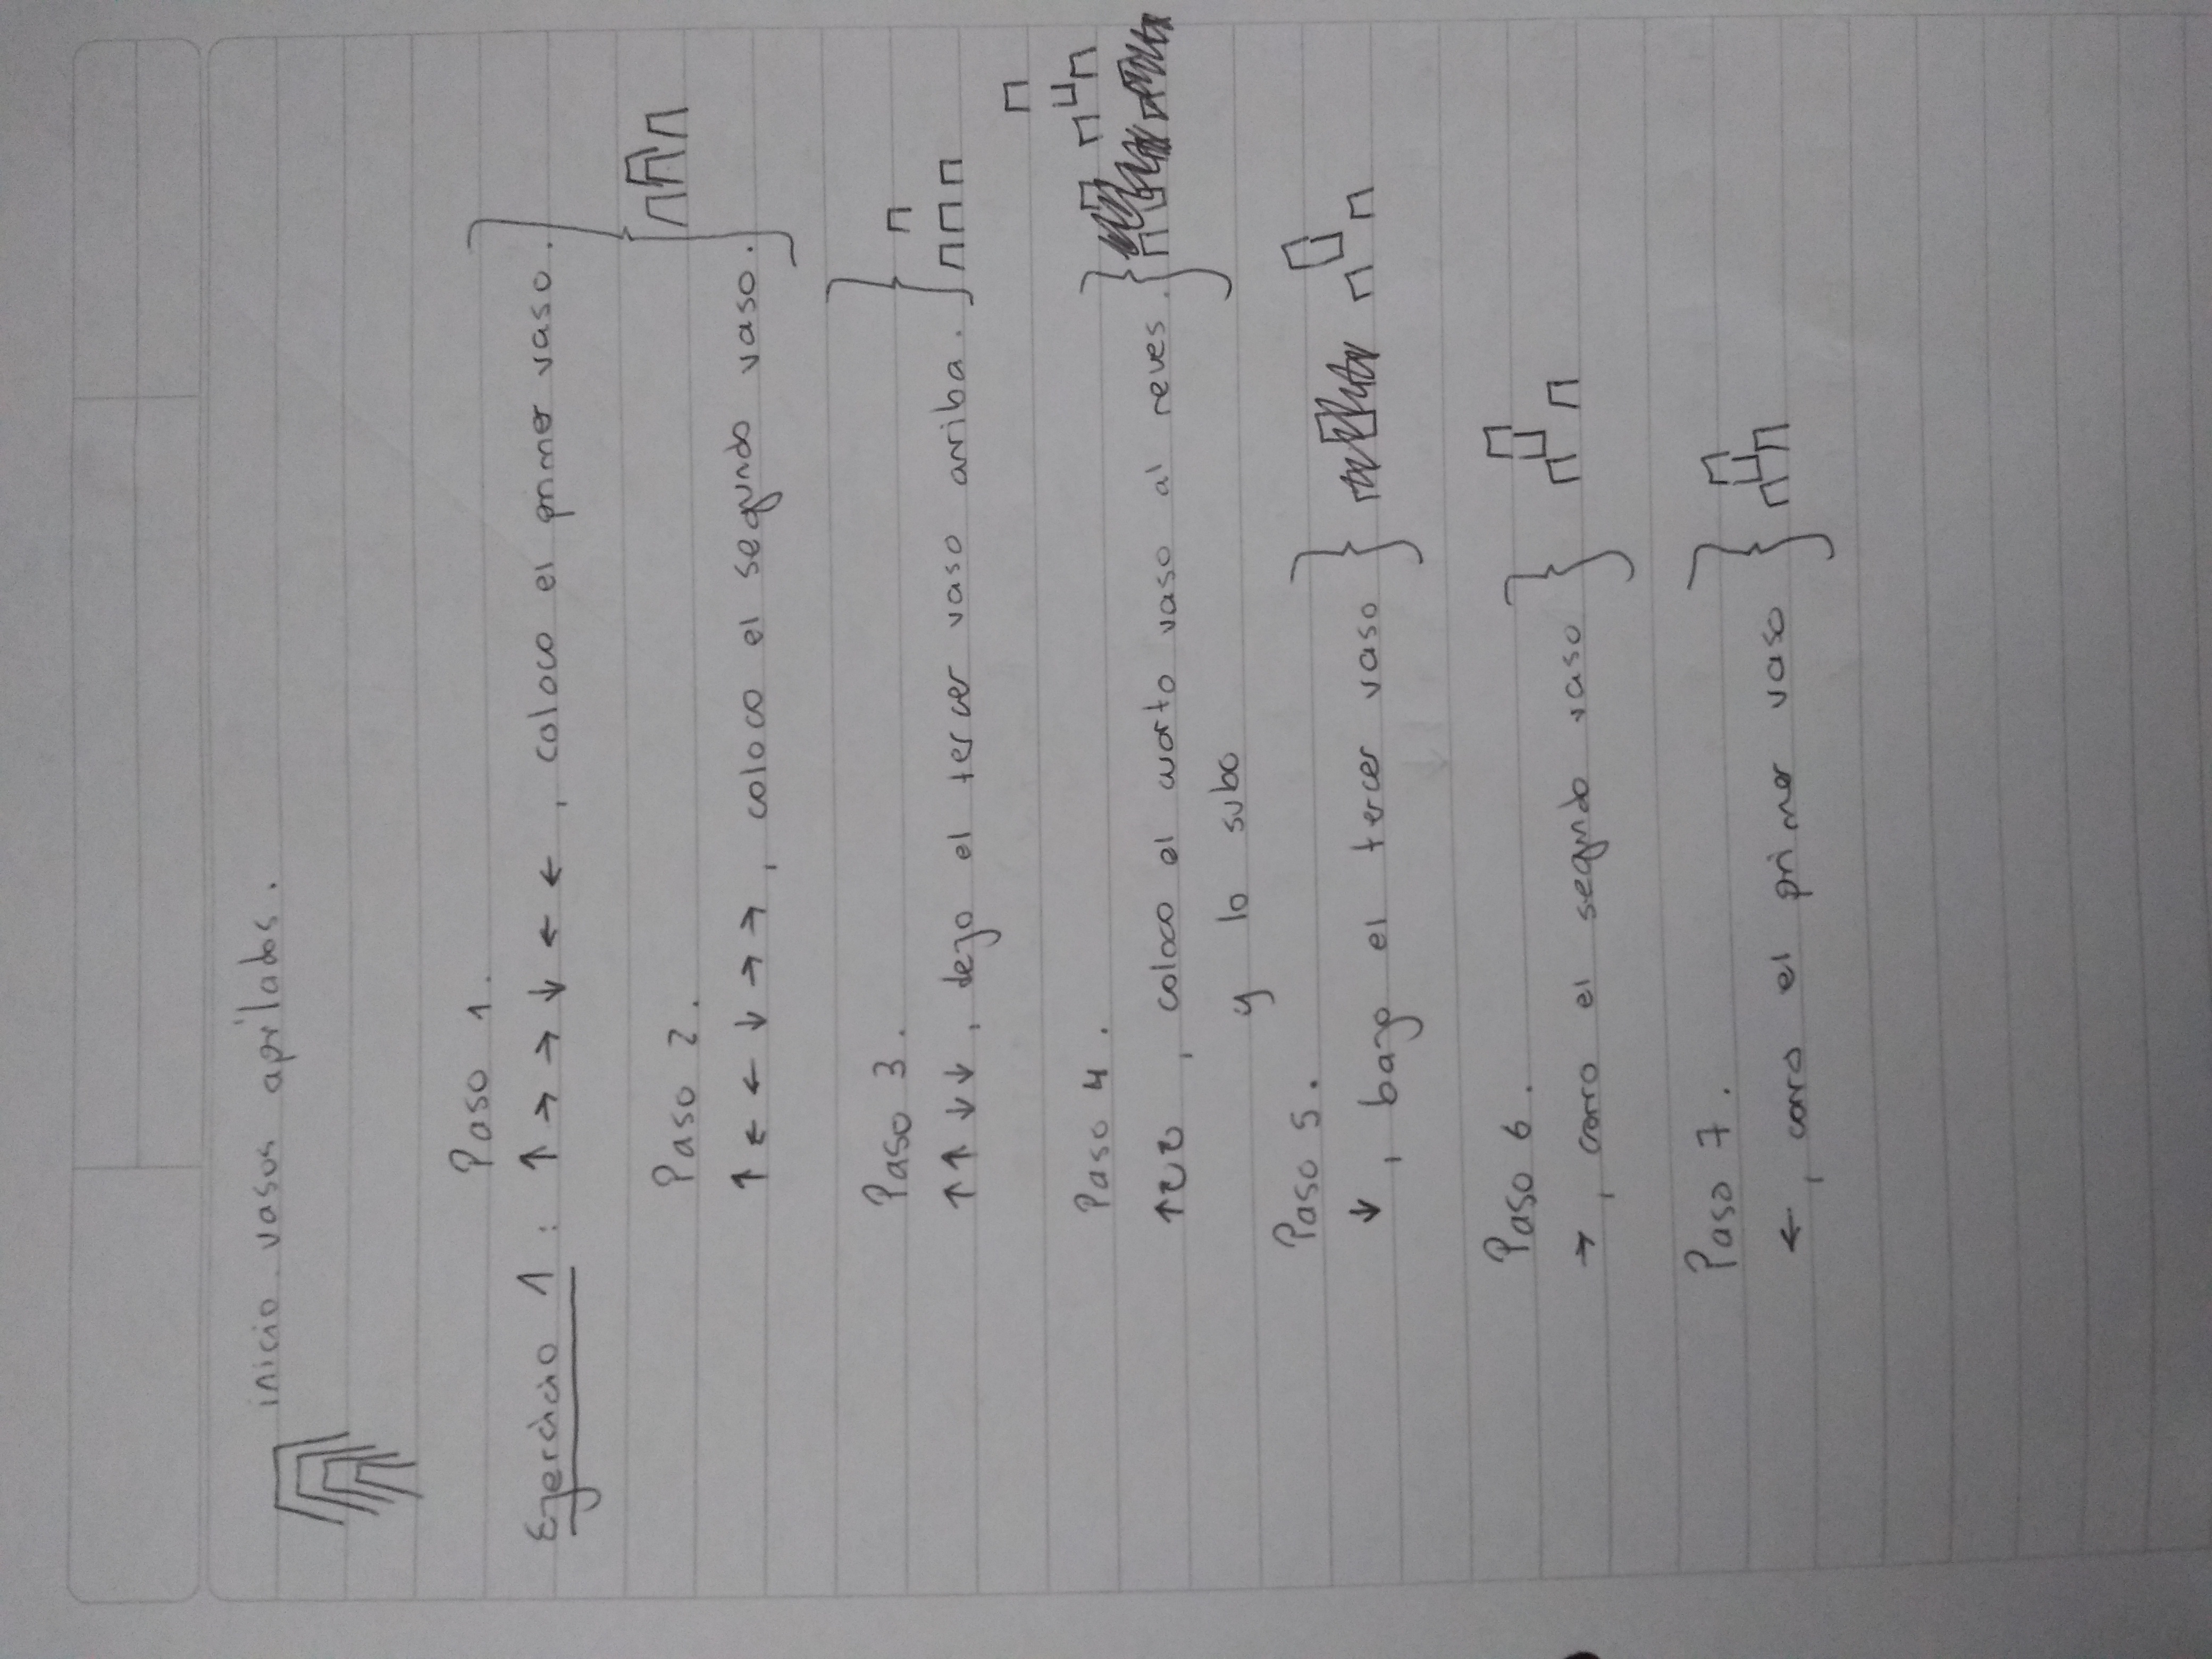 inicio vasos apilados.
Paso 1.
Ejercicio 1: ↑ → → ↓ ← ←, coloco el primer vaso.
Paso 2.
↑ ← ← ↓ → →, coloco el segundo vaso.
Paso 3.
↑↑ ↓↓, dejo el tercer vaso arriba.
Paso 4.
↑↻↻, coloco el cuarto vaso al reves.
y lo subo
Paso 5.
↓, bajo el tercer vaso
Paso 6.
→, corro el segundo vaso
Paso 7.
←, corro el primer vaso